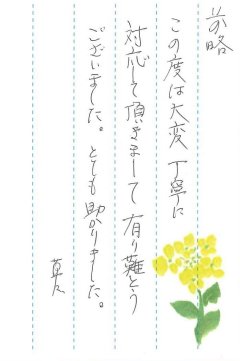 前略
この度は大変丁寧に
対応して頂きまして有り難とう
ございました。とても助かりました。
草々